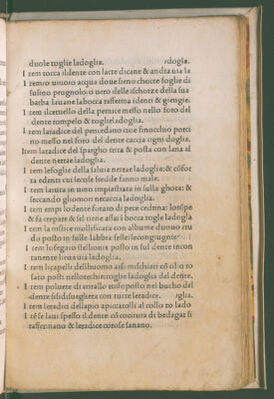 duole toglie ladoglia. idoglia.
I tem tocca ildente con lacte dicane & andra uia la
I rem o umoro acqua doue sieno chocte foglie di
susino prugnolo o uero delle ischorze della sua
barba lauane labocca rafferma identi & giengie.
I tem ilceruello della pernice messo nello foro del
dente rompelo & toglie ladoglia.
I tem laradice del peucedano cioe finocchio porci
no messo nel foro del dente caccia ogni doglia.
Item laradice del sparagho trita & posta con lana al
dente nettae ladoglia.
I tem lefoglie della saluia nettae ladoglia; & cōfor
ta edenti cui le cose fredde fanno male.
I tem laruta in uino impiastrata in sulla ghota; &
seccando ghomori netaccia ladoglia.
I tem empi lodente forato di pece cedrina: lo
& fa crepare & sel tiene assai i bocca togle ladogla
I tem la mollificata con albume duouo cru
do posto in sulle labbra fesse
I tem lofegato stellonis posto in sul dente incon
tanente lieua uia ladoglia.
I tem icapelli dellhuomo arsi mischiati cō olio ro
sato posti nellorecchio togle ladoglia del dente.
I tem poluere di corallo rosso posto nel bucho del
dente si sidisuegliera con tutte leradice. oglia.
I tem leradici dellapio apiccatolli al collo to lado
I tē se laui spesso il dente cō cocitura di bedagar si
raffermano & leradice corose sanano.